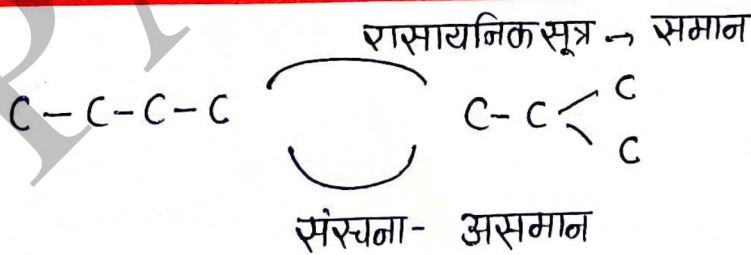 रासायनिक सूत्र → समान
C – C – C – C
C – C < C
C
संरचना - असमान